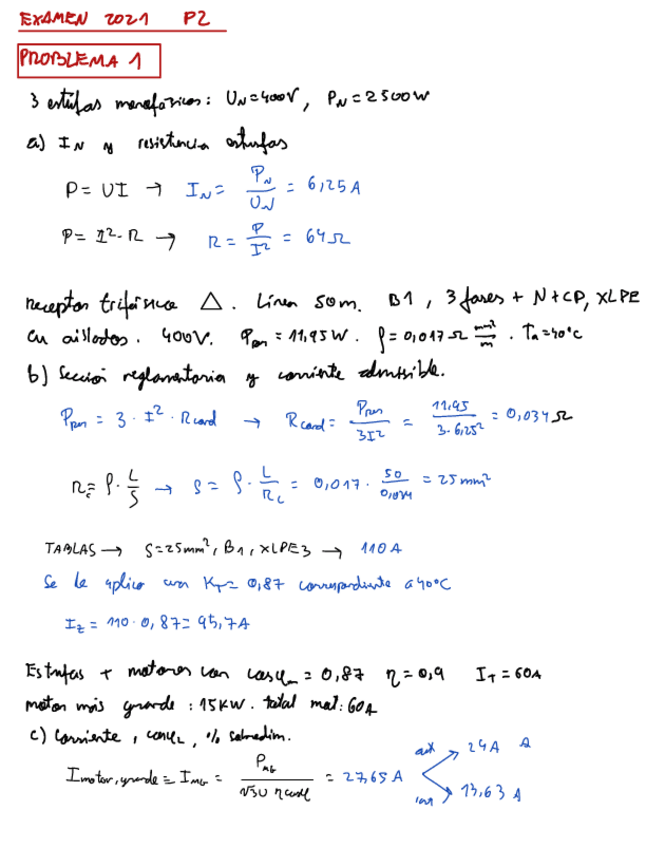 EXAMEN 2021 P2
PROBLEMA 1
3 estufas monofásicas: U_N=400V, P_N=2500W
a) I_N y resistencia estufas
P = UI → I_N = P_N / U_N = 6,25 A
P = I²·R → R = P / I² = 64 Ω
Receptor trifásico Δ. Línea 50m. B1, 3 fases + N+CP, XLPE
Cu aislados. 400V. P_per = 11,95 W. ρ = 0,017 Ω mm²/m. T_a = 40°C
b) Sección reglamentaria y corriente admisible.
P_per = 3 · I² · R_cond → R_cond = P_per / 3I² = 11,95 / 3·6,25² = 0,034 Ω
R_c = ρ · L/S → S = ρ · L/R_c = 0,017 · 50/0,034 = 25 mm²
TABLAS → S=25mm², B1, XLPE3 → 110 A
Se le aplica un K_T = 0,87 correspondiente a 40°C
I_z = 110 · 0,87 = 95,7 A
Estufas + motores con cosφ_m = 0,87 η = 0,9 I_T = 60A
motor más grande : 15KW. total mot: 60A
c) Corriente, cosφ_2, % sobredim.
I motor, grande = I_MG = P_MG / √3 U η cosφ = 27,65 A
act → 24 A
13,63 A